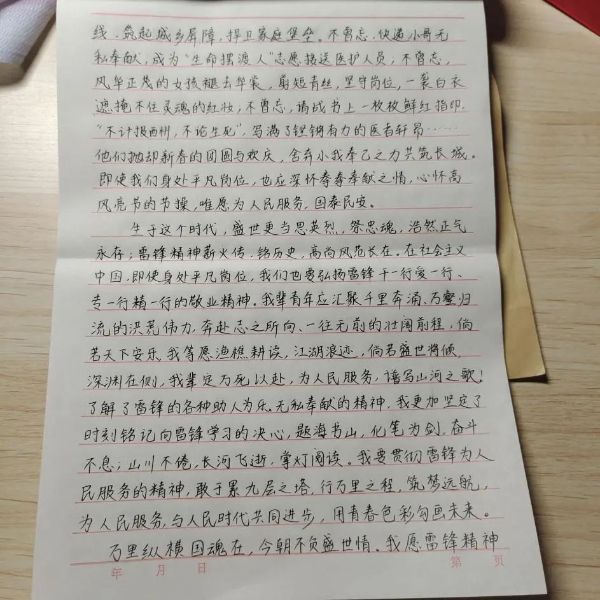 线,筑起城乡屏障,捍卫家庭堡垒。不曾忘,快递小哥无
私奉献,成为“生命摆渡人”志愿接送医护人员,不曾忘,
风华正茂的女孩褪去华裳,剪短青丝,坚守岗位,一袭白衣
遮掩不住灵魂的红妆,不曾忘,请战书上一枚枚鲜红指印,
“不计报酬,不论生死”,写满了铿锵有力的医者轩昂……
他们抛却新春的团圆与欢庆,舍弃小我奉己之力共筑长城。
即使我们身处平凡岗位,也应深怀奉献之情,心怀高
风亮节的节操,唯愿为人民服务,国泰民安。
生于这个时代,盛世更当思英烈,祭忠魂,浩然正气
永存;雷锋精神薪火传,铭历史,高尚风范长在。在社会主义
中国,即使身处平凡岗位,我们也要弘扬雷锋干一行爱一行、
专一行精一行的敬业精神。我辈青年应汇聚千里奔涌,万壑归
流的洪荒伟力,奔赴志之所向、一往无前的壮阔前程,倘
若天下安乐,我等愿渔樵耕读,江湖浪迹,倘若盛世将倾,
深渊在侧,我辈定万死以赴,为人民服务,谱写山河之歌!
了解了雷锋的各种助人为乐、无私奉献的精神,我更加坚定了
时刻铭记向雷锋学习的决心,题海书山,化笔为剑,奋斗
不息;山川不倦,长河飞逝,掌灯阅读。我要贯彻雷锋为人
民服务的精神,敢于累九层之塔,行万里之程,筑梦远航,
为人民服务,与人民时代共同进步,用青春色彩勾画未来。
万里纵横国魂在,今朝不负盛世情。我愿雷锋精神
年 月 日 第 页